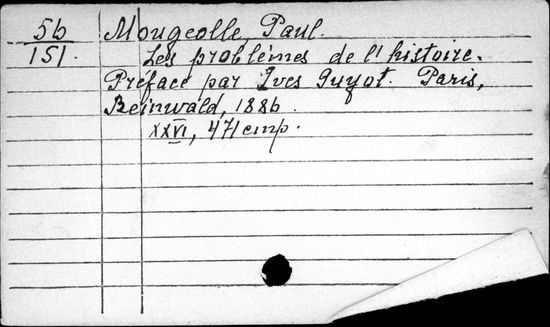 56 Mougeolle, Paul.
151. Les problèmes de l'histoire.
Préface par Yves Guyot. Paris,
Reinwald, 1886.
XXVI, 471 стр.